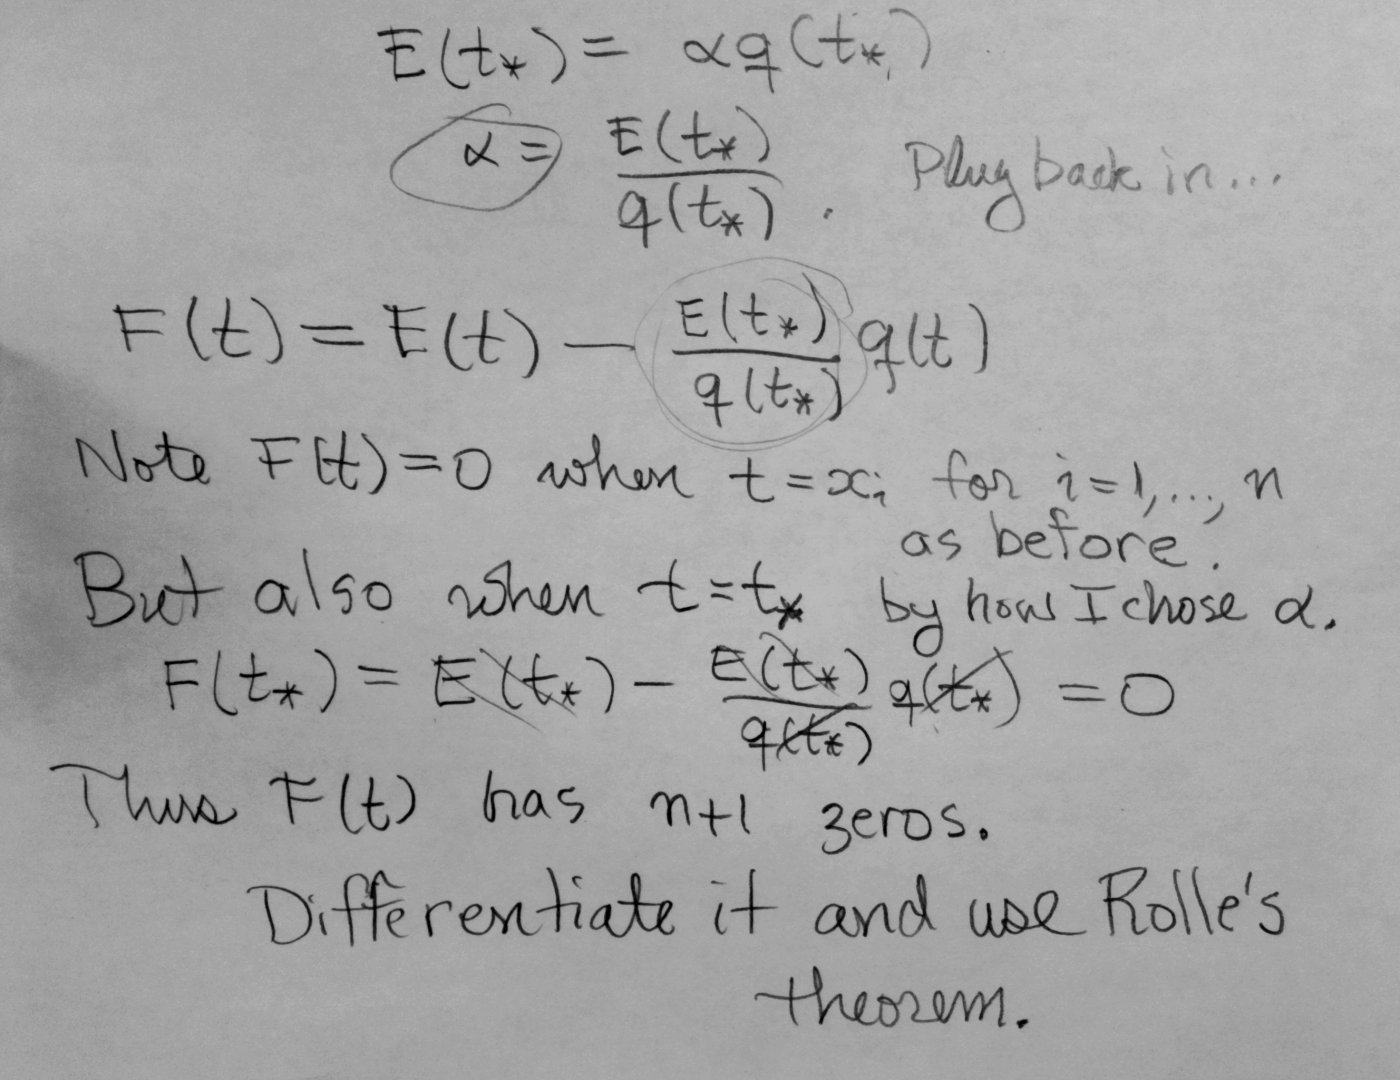 E(t*) = αq(t*)
α = E(t*)/q(t*). Plug back in...
F(t) = E(t) − E(t*)/q(t*) q(t)
Note F(t)=0 when t=xᵢ for i=1,..., n
as before.
But also when t=t* by how I chose α.
F(t*) = E(t*) − E(t*)/q(t*) q(t*) = 0
Thus F(t) has n+1 zeros.
Differentiate it and use Rolle's
theorem.